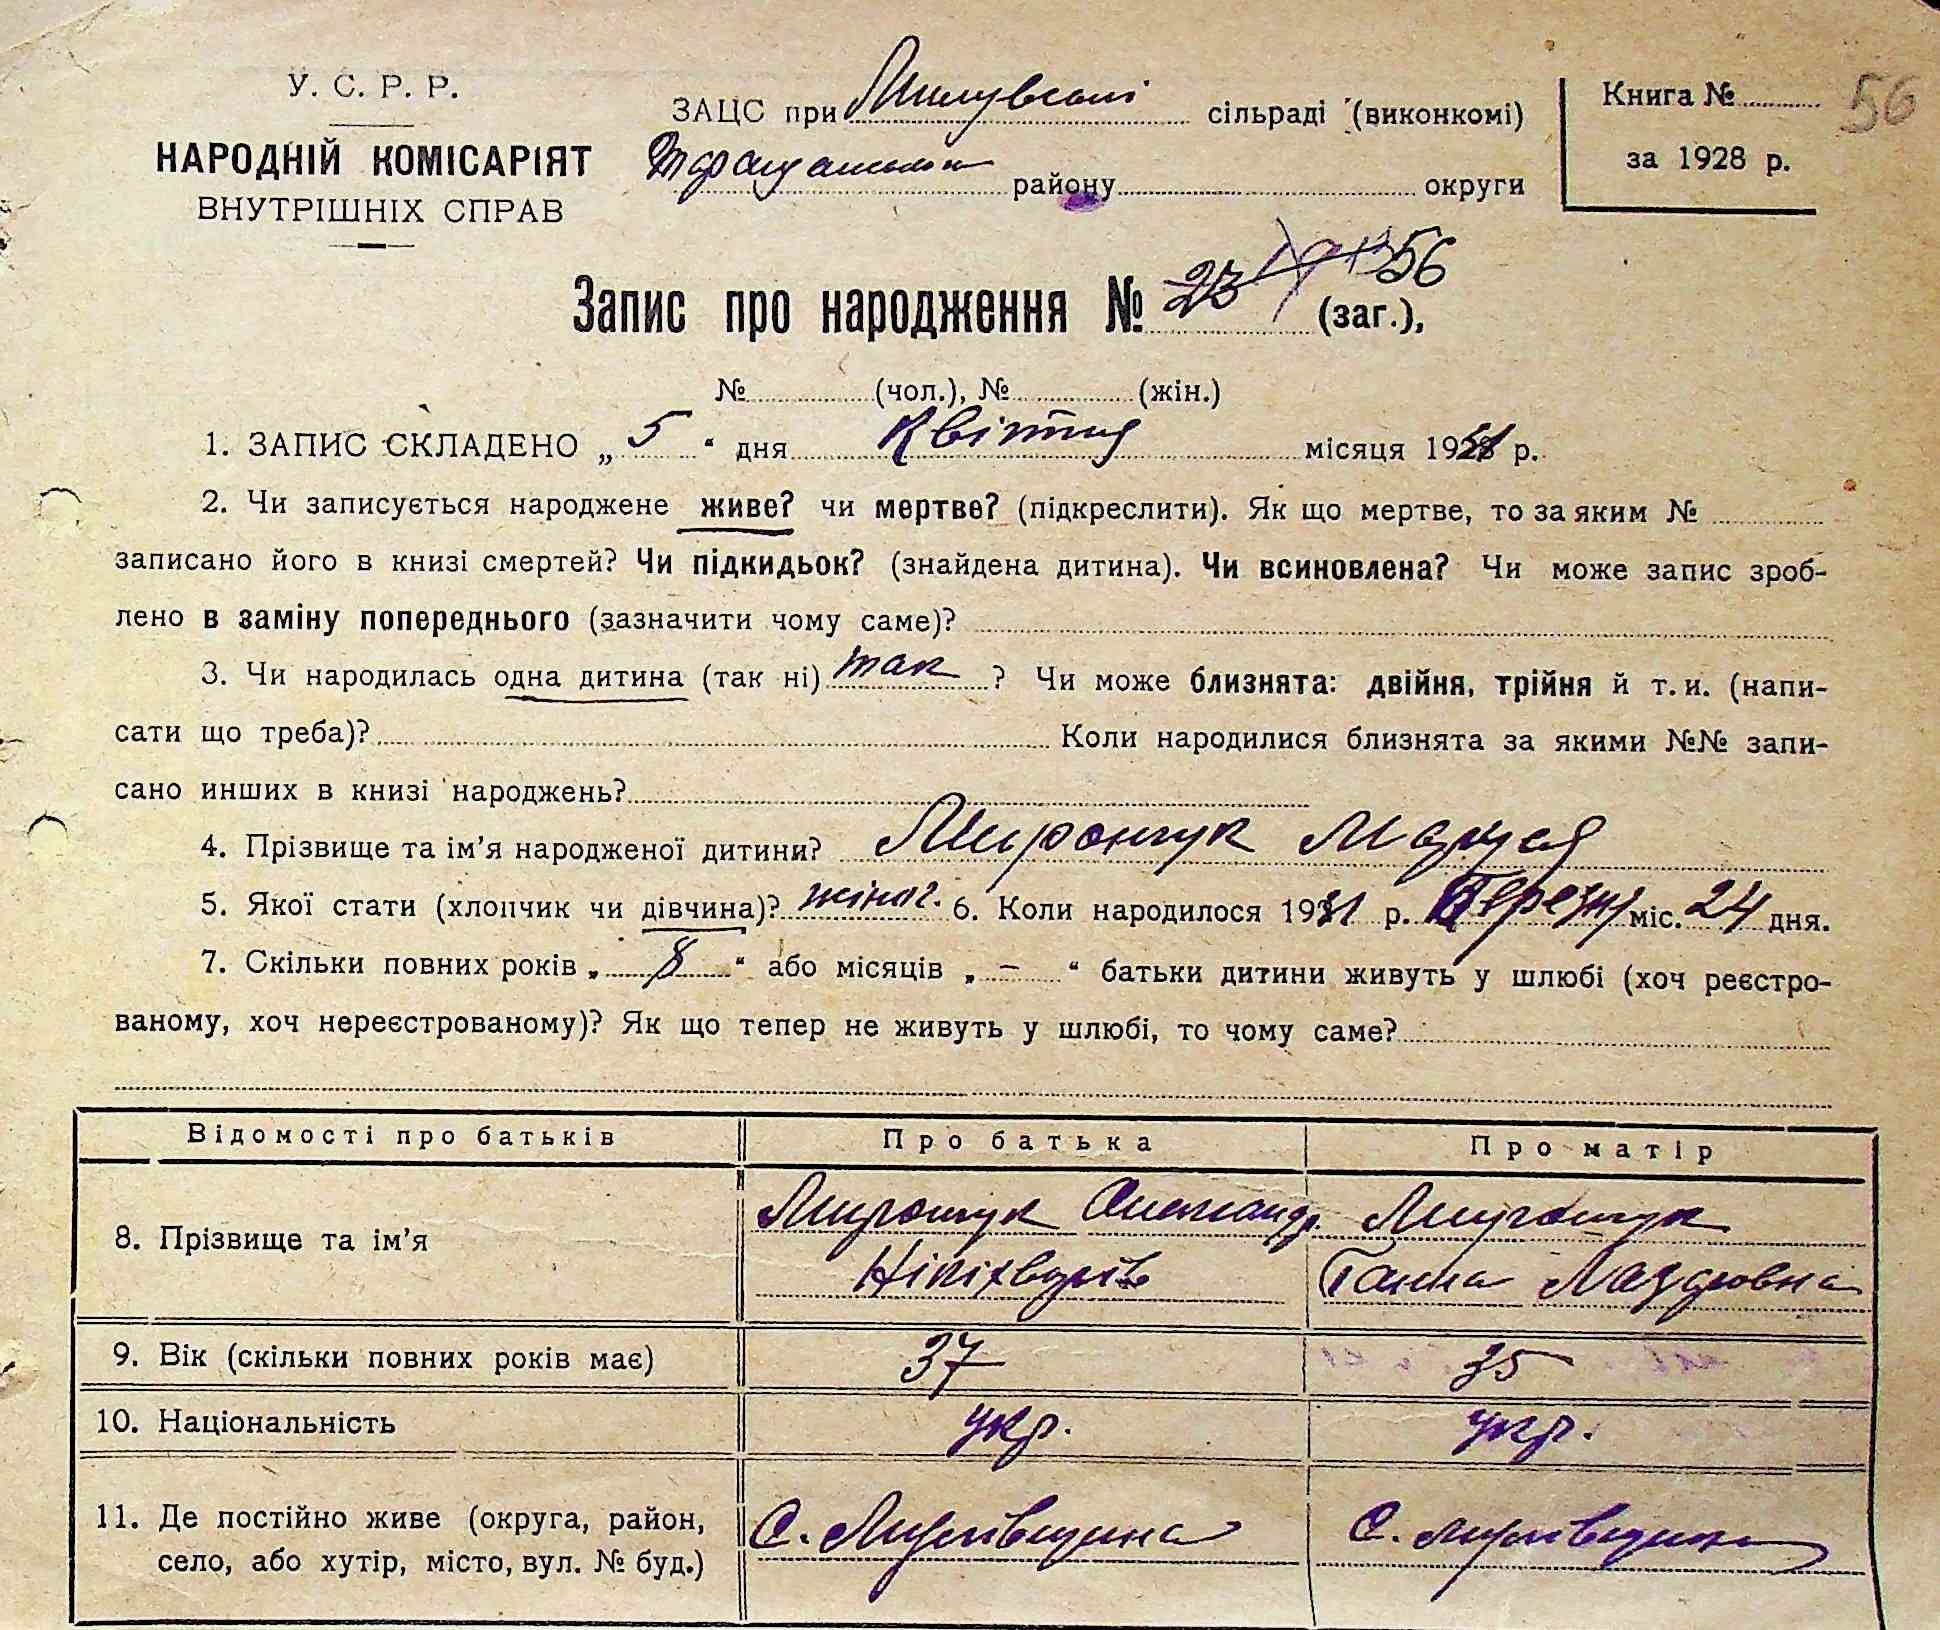 У. С. Р. Р.
НАРОДНІЙ КОМІСАРІЯТ
ВНУТРІШНІХ СПРАВ
ЗАЦС при сільраді (виконкомі)
району округи
Книга № 56
за 1928 р.
Запис про народження № 23 56 (заг.),
№ (чол.), № (жін.)
1. ЗАПИС СКЛАДЕНО „ 5 “ дня Квітня місяця 1931 р.
2. Чи записується народжене живе? чи мертве? (підкреслити). Як що мертве, то за яким №
записано його в книзі смертей? Чи підкидьок? (знайдена дитина). Чи всиновлена? Чи може запис зроб-
лено в заміну попереднього (зазначити чому саме)?
3. Чи народилась одна дитина (так ні) так ? Чи може близнята: двійня, трійня й т. и. (напи-
сати що треба)? Коли народилися близнята за якими №№ запи-
сано инших в книзі народжень?
4. Прізвище та ім’я народженої дитини? Мирончук Маруся
5. Якої стати (хлопчик чи дівчина)? жіноч. 6. Коли народилося 1931 р. Березня міс. 24 дня.
7. Скільки повних років „ 8 “ або місяців „ – “ батьки дитини живуть у шлюбі (хоч реєстро-
ваному, хоч нереєстрованому)? Як що тепер не живуть у шлюбі, то чому саме?
Відомості про батьків Про батька Про матір
8. Прізвище та ім’я Мирончук Олександр Мирончук
Ганна Лазаровна
9. Вік (скільки повних років має) 37 35
10. Національність укр. укр.
11. Де постійно живе (округа, район, С. С.
село, або хутір, місто, вул. № буд.)